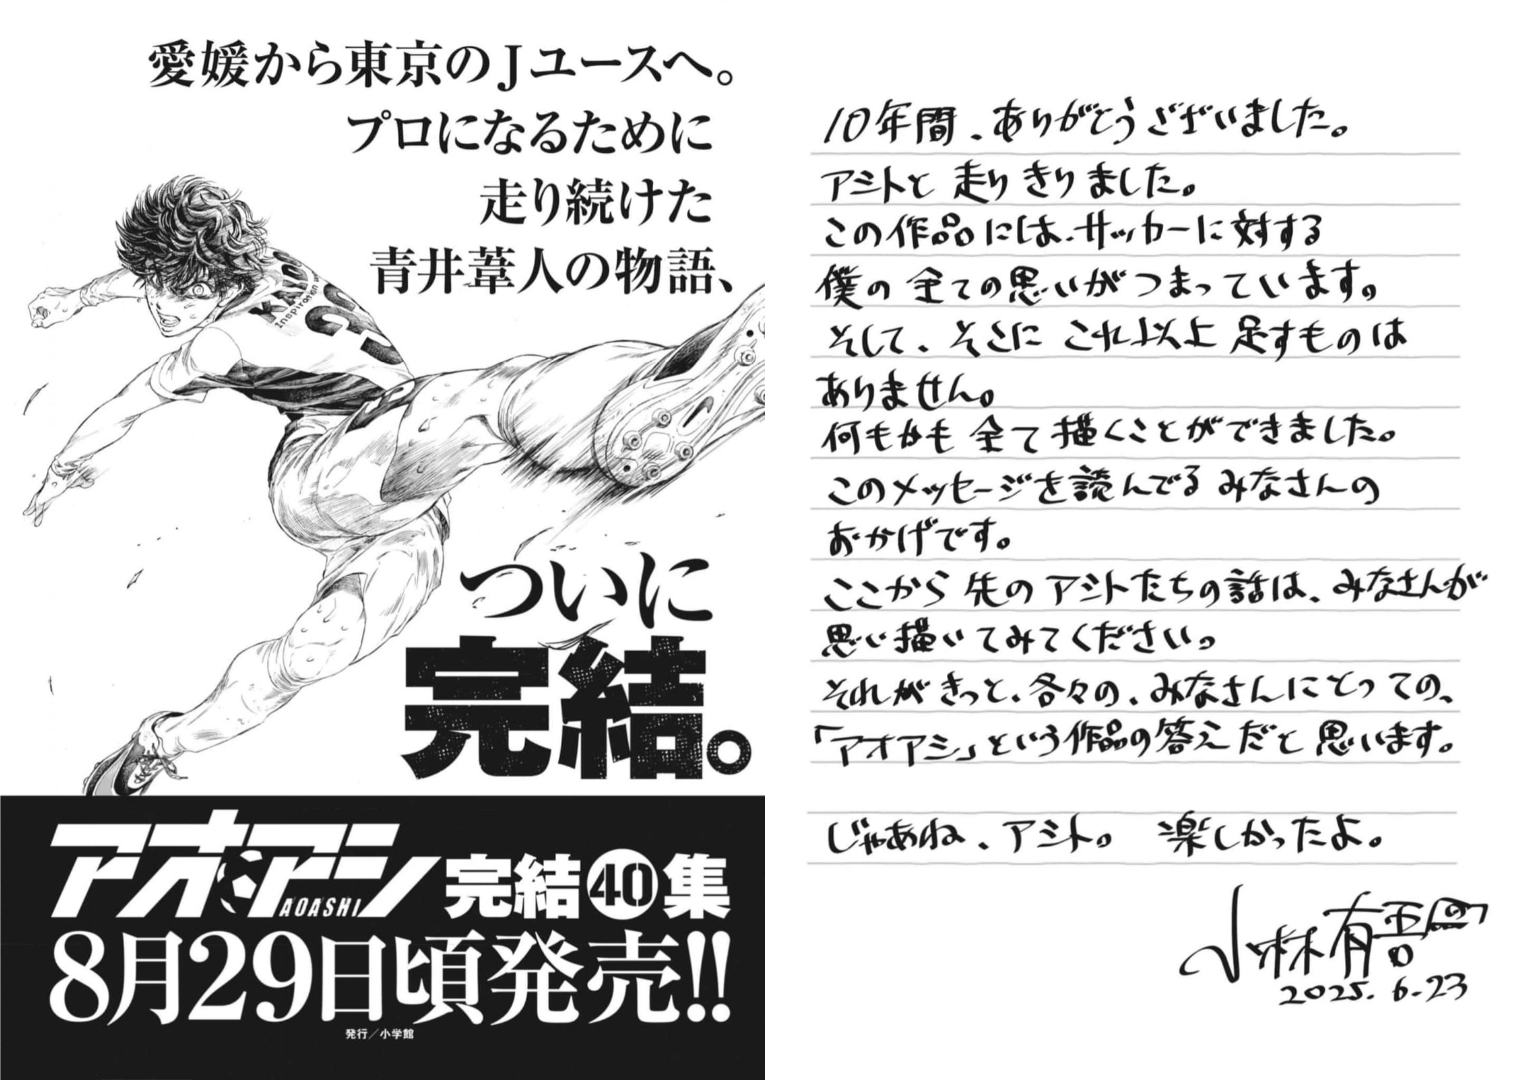 愛媛から東京のJユースへ。
プロになるために
走り続けた
青井葦人の物語、
ついに
完結。
アオアシ
AOASHI
完結40集
8月29日頃発売!!
発行/小学館
10年間、ありがとうございました。
アシトと走りきりました。
この作品には、サッカーに対する
僕の全ての思いがつまっています。
そして、そこにこれ以上足すものは
ありません。
何もかも全て描くことができました。
このメッセージを読んでるみなさんの
おかげです。
ここから先のアシトたちの話は、みなさんが
思い描いてみてください。
それがきっと、各々の、みなさんにとっての、
「アオアシ」という作品の答えだと思います。
じゃあね、アシト。 楽しかったよ。
小林有吾
2025.6.23